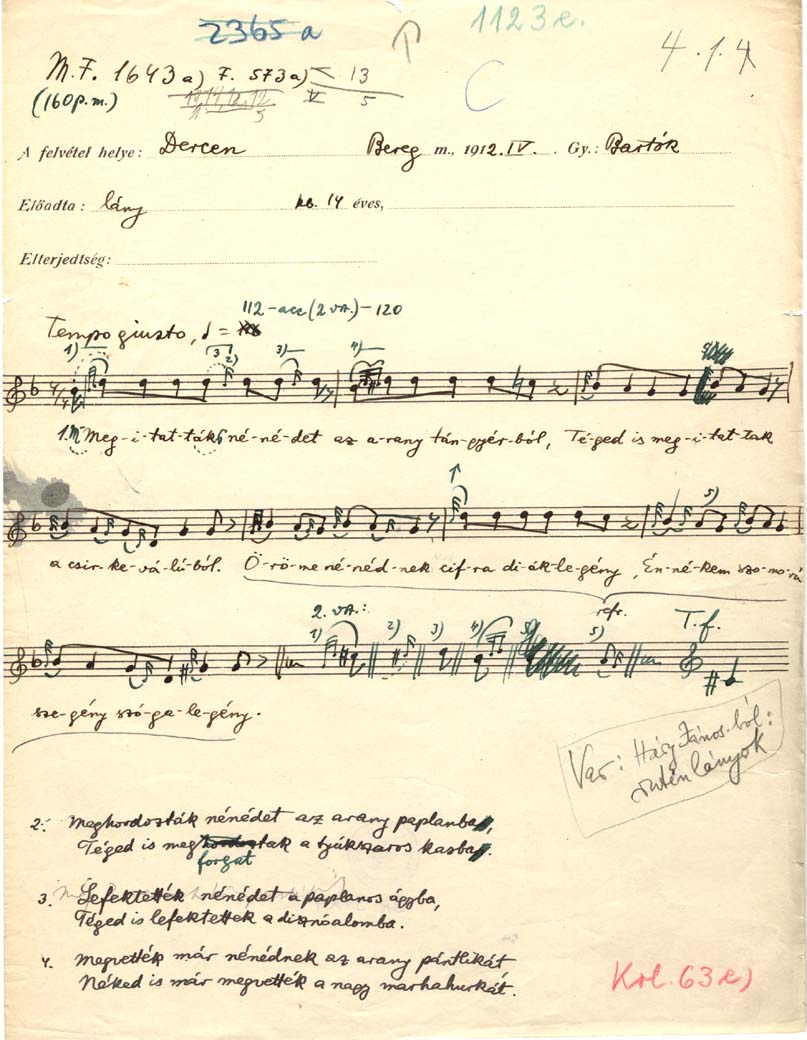 2365a
1123e.
4.1.4
M.F. 1643a) F. 573a) 13
(160 p.m.) V 5
C
A felvétel helye: Dercen Bereg m., 1912. IV. Gy.: Bartók
Előadta: lány kb. 14 éves,
Elterjedtség:
112-acc(2 va.)-120
Tempo giusto,
1) 3 2) 3) 4) 5)
1. Meg-i-tat-ták né-né-det az a-rany tán-gyér-ból, Té-ged is meg-i-tat-tak
5)
a csir-ke-vá-lú-ból. Ö-rö-me né-néd-nek cif-ra di-ák-le-gény, Én-né-kem szo-mo-rú
refr.
2. va.: 1) 2) 3) 4) 5) T.f.
sze-gény szó-ga-le-gény.
Var: Háry János-ból:
lányok
2. Meghordozták nénédet az arany paplanba,
Téged is megforgattak a tyúkszaros kasba.
3. Lefektették nénédet a paplanos ágyba,
Téged is lefektettek a disznóalomba.
4. Megvették már nénédnek az arany pántlikát
Néked is már megvették a nagy marhahurkát.
Kol. 63e)